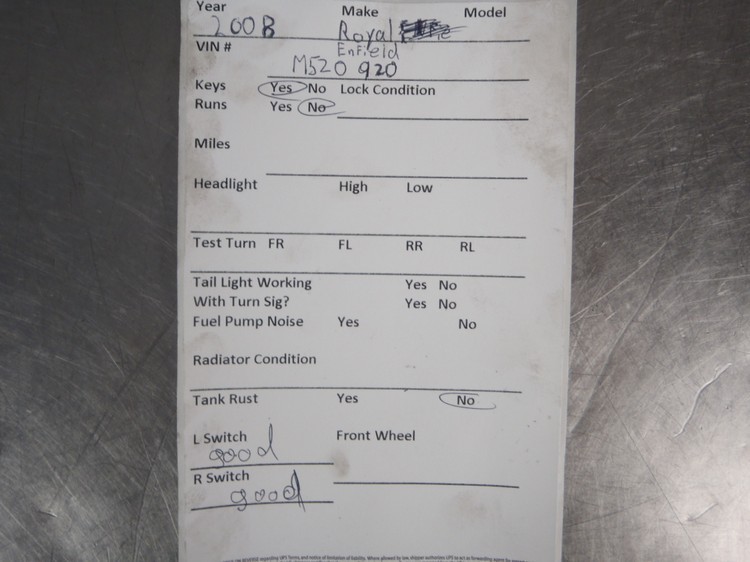 Year Make Model
2008 Royal
VIN # EnField
M520 920
Keys Yes No Lock Condition
Runs Yes No
Miles
Headlight High Low
Test Turn FR FL RR RL
Tail Light Working Yes No
With Turn Sig? Yes No
Fuel Pump Noise Yes No
Radiator Condition
Tank Rust Yes No
L Switch Front Wheel
good
R Switch
good